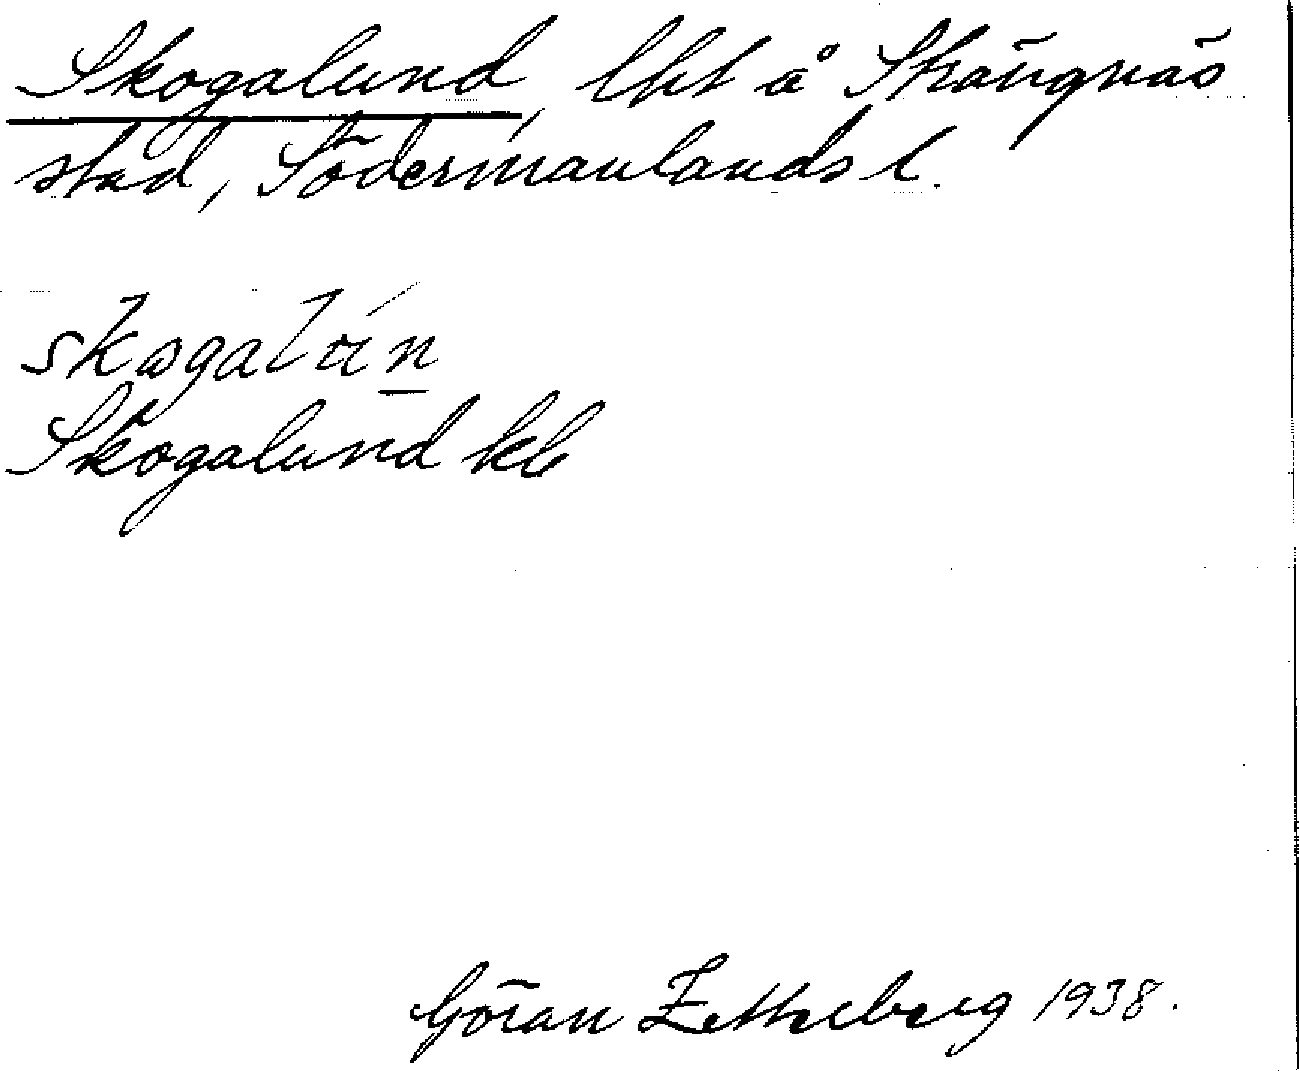 Skogalund, lht å Strängnäs
stad, Södermanlands l.
Skogalund kb
Göran Zetterberg 1938.